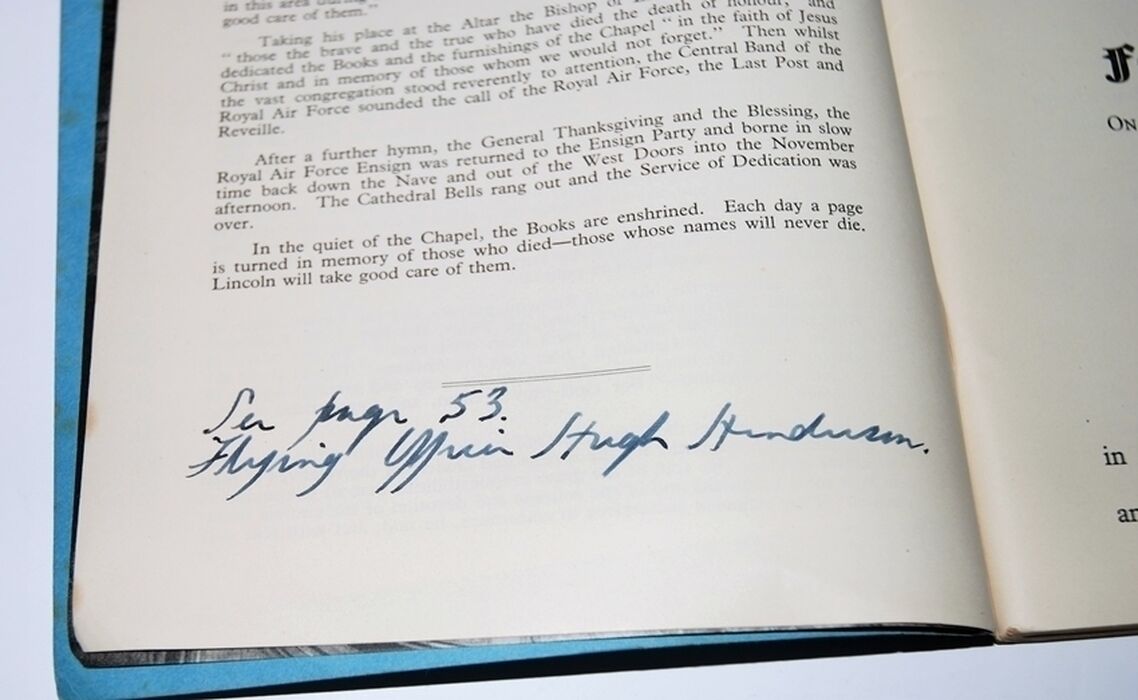 in this area during
good care of them."
Taking his place at the Altar the Bishop of
" those the brave and the true who have died the death of honour, and
dedicated the Books and the furnishings of the Chapel " in the faith of Jesus
Christ and in memory of those whom we would not forget." Then whilst
the vast congregation stood reverently to attention, the Central Band of the
Royal Air Force sounded the call of the Royal Air Force, the Last Post and
Reveille.
After a further hymn, the General Thanksgiving and the Blessing, the
Royal Air Force Ensign was returned to the Ensign Party and borne in slow
time back down the Nave and out of the West Doors into the November
afternoon. The Cathedral Bells rang out and the Service of Dedication was
over.
In the quiet of the Chapel, the Books are enshrined. Each day a page
is turned in memory of those who died—those whose names will never die.
Lincoln will take good care of them.
See page 53.
Flying Officer Hugh Henderson.
On
in